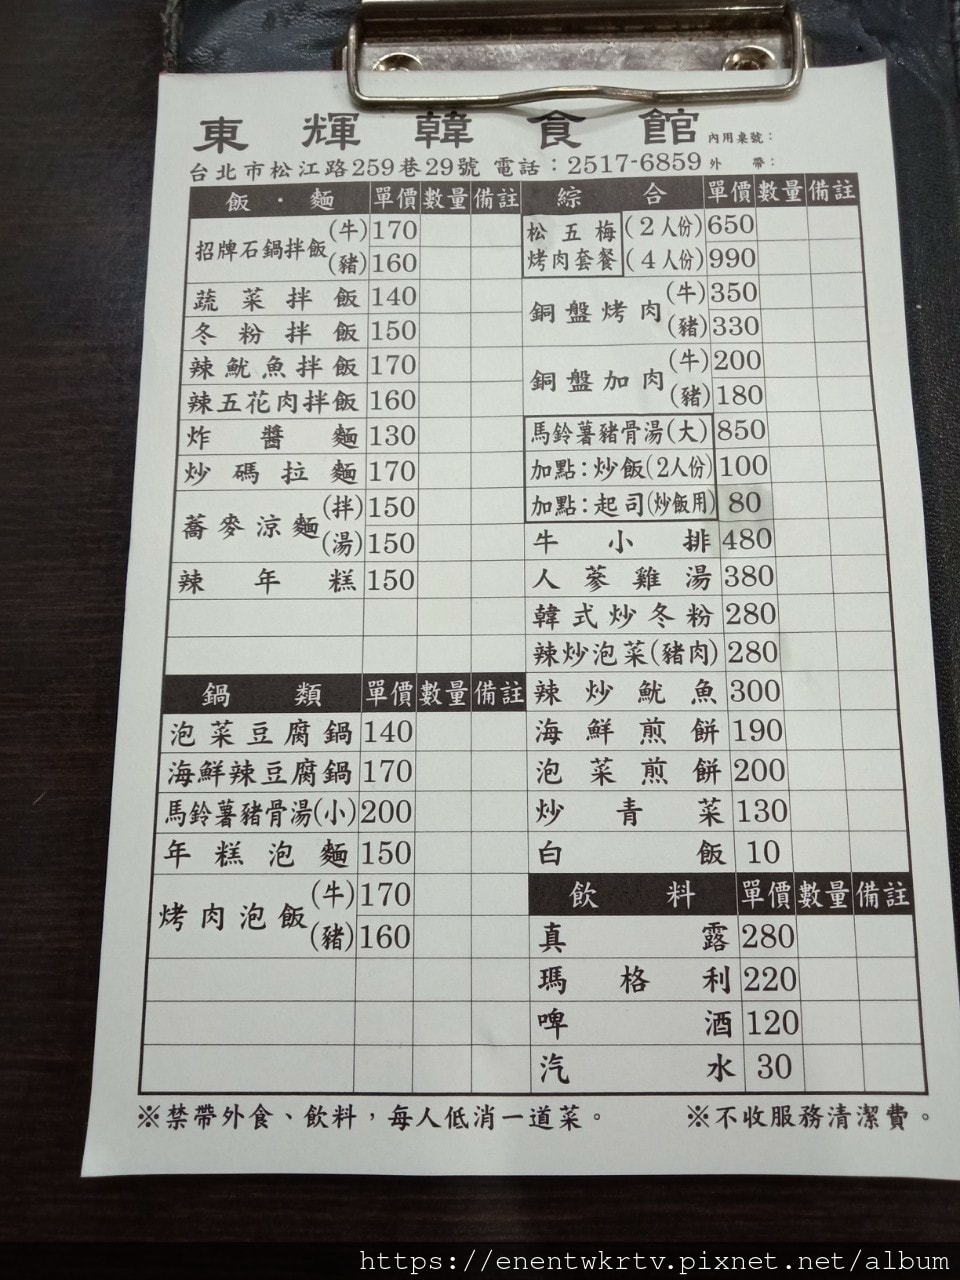 東輝韓食館 內用桌號：
台北市松江路259巷29號 電話：2517-6859 外帶：
飯・麵 單價 數量 備註
招牌石鍋拌飯 (牛) 170
(豬) 160
蔬菜拌飯 140
冬粉拌飯 150
辣魷魚拌飯 170
辣五花肉拌飯 160
炸醬麵 130
炒碼拉麵 170
蕎麥涼麵 (拌) 150
(湯) 150
辣年糕 150
鍋類 單價 數量 備註
泡菜豆腐鍋 140
海鮮辣豆腐鍋 170
馬鈴薯豬骨湯(小) 200
年糕泡麵 150
烤肉泡飯 (牛) 170
(豬) 160
綜合 單價 數量 備註
松五梅 (2人份) 650
烤肉套餐 (4人份) 990
銅盤烤肉 (牛) 350
(豬) 330
銅盤加肉 (牛) 200
(豬) 180
馬鈴薯豬骨湯(大) 850
加點：炒飯(2人份) 100
加點：起司(炒飯用) 80
牛小排 480
人蔘雞湯 380
韓式炒冬粉 280
辣炒泡菜(豬肉) 280
辣炒魷魚 300
海鮮煎餅 190
泡菜煎餅 200
炒青菜 130
白飯 10
飲料 單價 數量 備註
真露 280
瑪格利 220
啤酒 120
汽水 30
※禁帶外食、飲料，每人低消一道菜。 ※不收服務清潔費。
https://enentwkrtv.pixnet.net/album